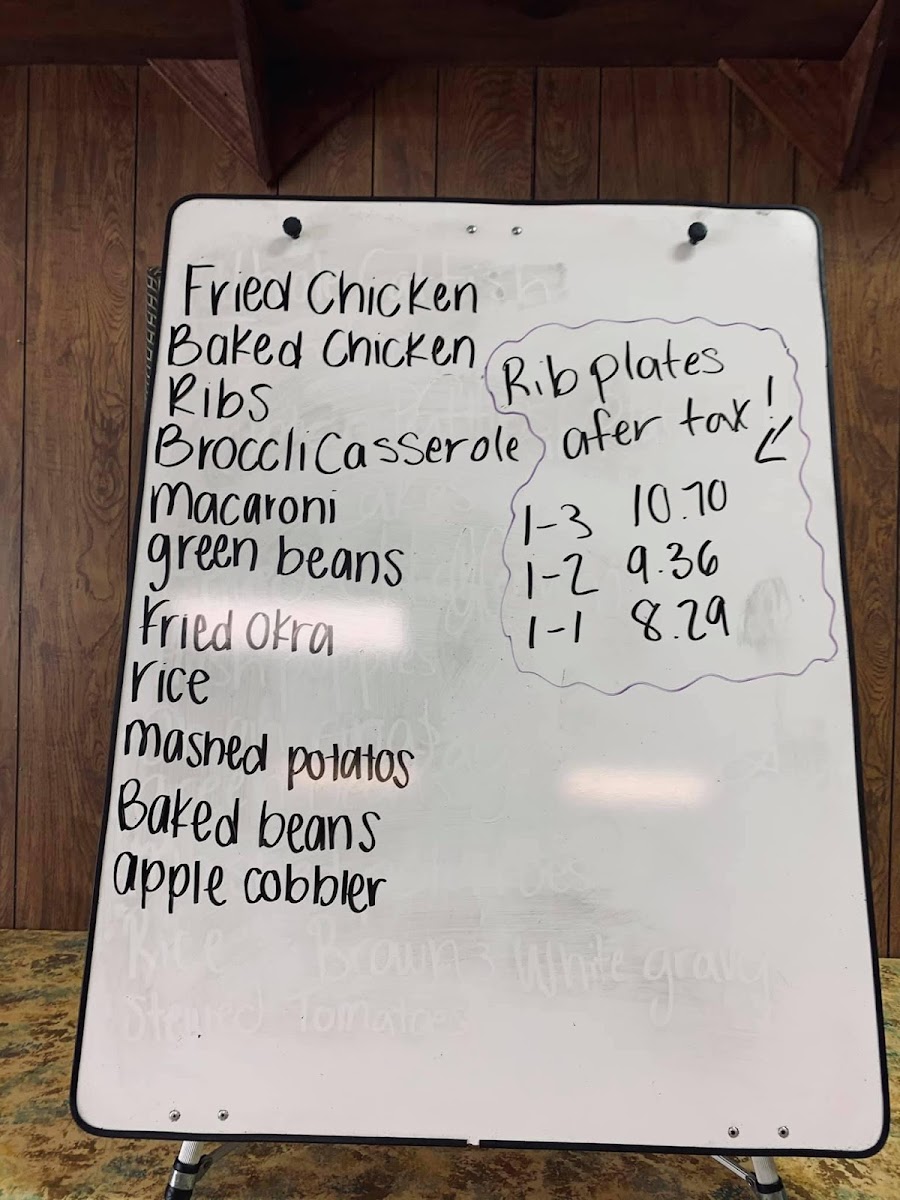 Fried Chicken
Baked Chicken
Ribs
BroccliCasserole
Macaroni
green beans
Fried Okra
rice
mashed potatos
Baked beans
apple cobbler
Rib plates
afer tax!
1-3 10.70
1-2 9.36
1-1 8.29
Rice Brown & White gravy
Stewed Tomatoes